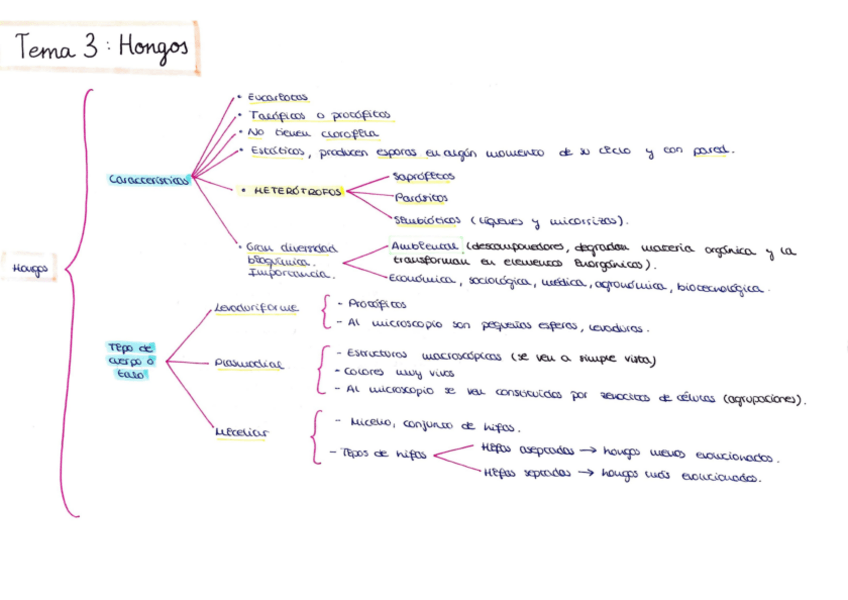 Tema 3: Hongos
Hongos
Características
• Eucariotas
• Talófitos o protófitos
• No tienen clorofila
• Estáticos, producen esporas en algún momento de su ciclo y con pared.
• HETERÓTROFOS
Saprófitos
Parásitos
Simbióticos (líquenes y micorrizas).
• Gran diversidad
bioquímica.
Importancia.
Ambiental (descomponedores, degradan materia orgánica y la
transforman en elementos inorgánicos).
Económica, sociológica, médica, agronómica, biotecnológica.
Tipo de
cuerpo o
talo
Levaduriforme
- Protófitos
- Al microscopio son pequeñas esferas, levaduras.
Plasmodial
- Estructuras macroscópicas (se ven a simple vista)
- Colores muy vivos
- Al microscopio se ven constituidos por de células (agrupaciones).
Micelial
- Micelio, conjunto de hifas.
- Tipos de hifas
Hifas aseptadas → hongos menos evolucionados.
Hifas septadas → hongos más evolucionados.